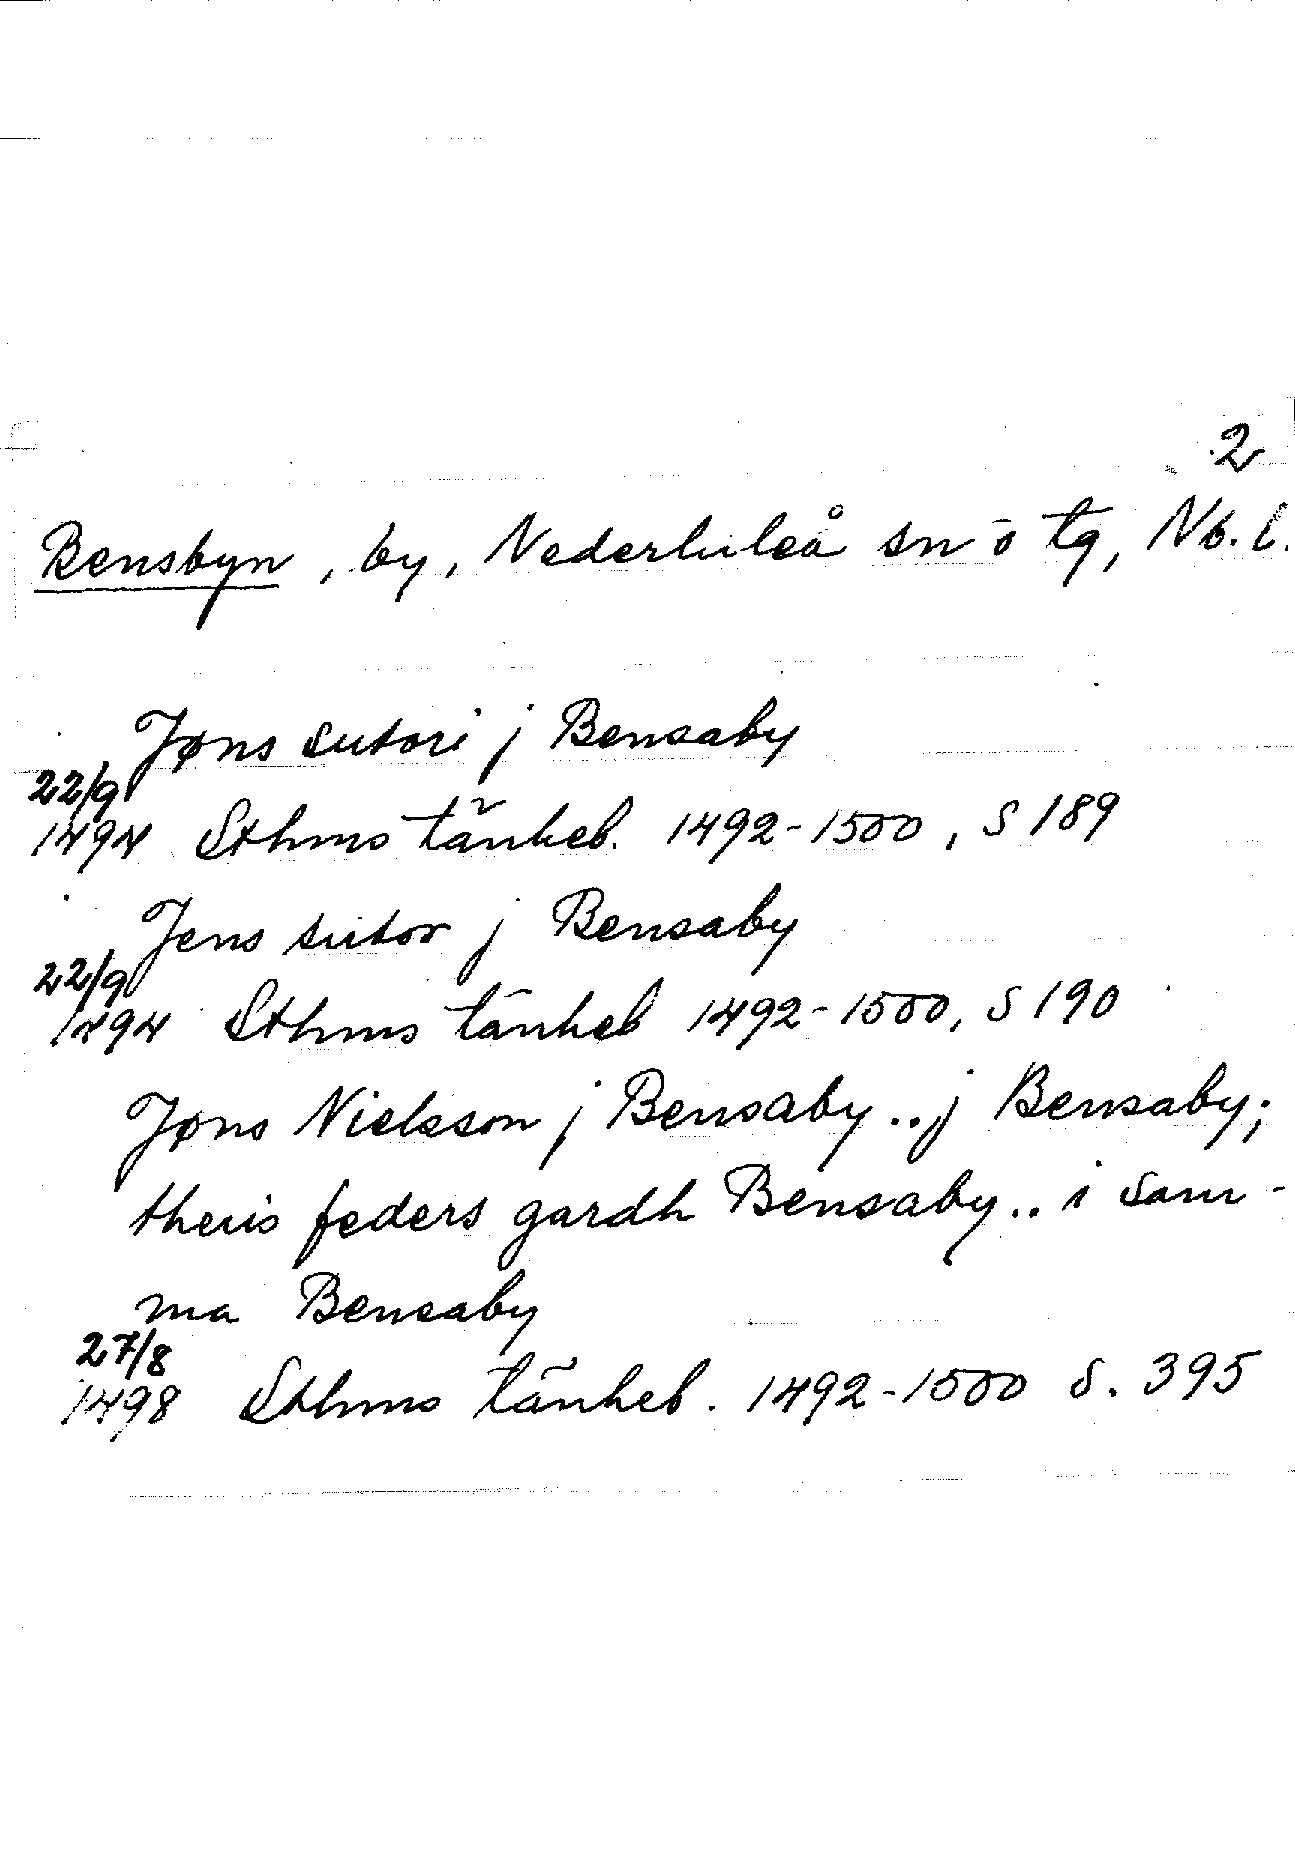 2
Bensbyn, by, Nederluleå sn o tg, Nb. l.
Jøns sutori j Bensaby
22/9
1494 Sthms tänkeb. 1492-1500, S 189
Jens sutor j Bensaby
22/9
1494 Sthms tänkeb 1492-1500, S 190
Jøns Nielsson j Bensaby .. j Bensaby;
theris feders gardh Bensaby .. i sam-
ma Bensaby
27/8
1498 Sthms tänkeb. 1492-1500 S. 395